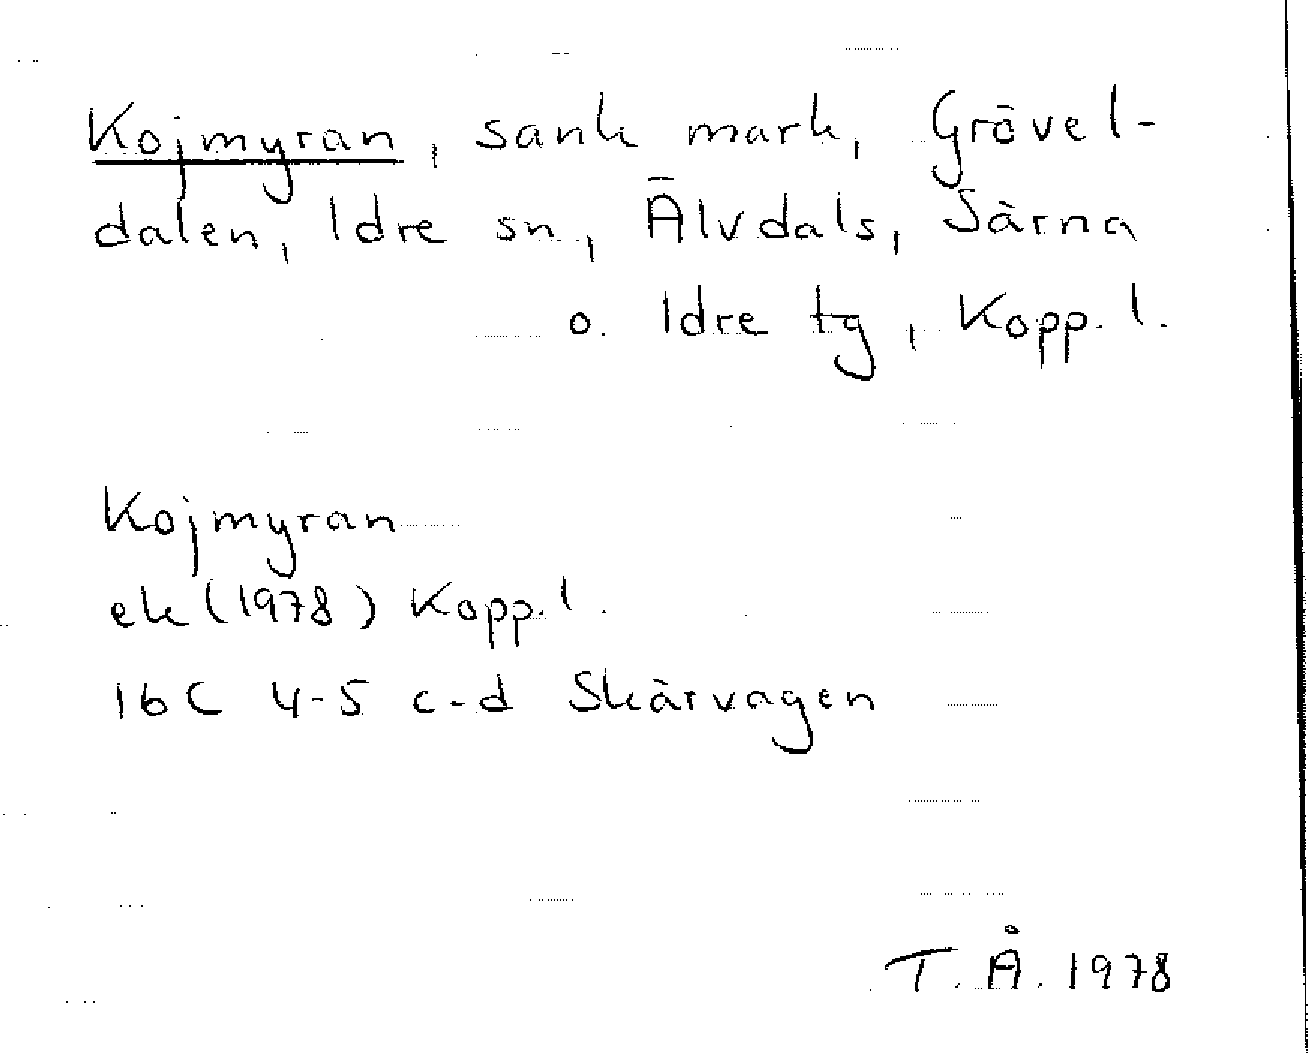 Kojmyran, sank mark, Grövel-
dalen, Idre sn, Älvdals, Särna
o. Idre tg, Kopp. l.
Kojmyran
ek (1978) Kopp. l.
16C 4-5 c-d Skärvagen
T. Å. 1978